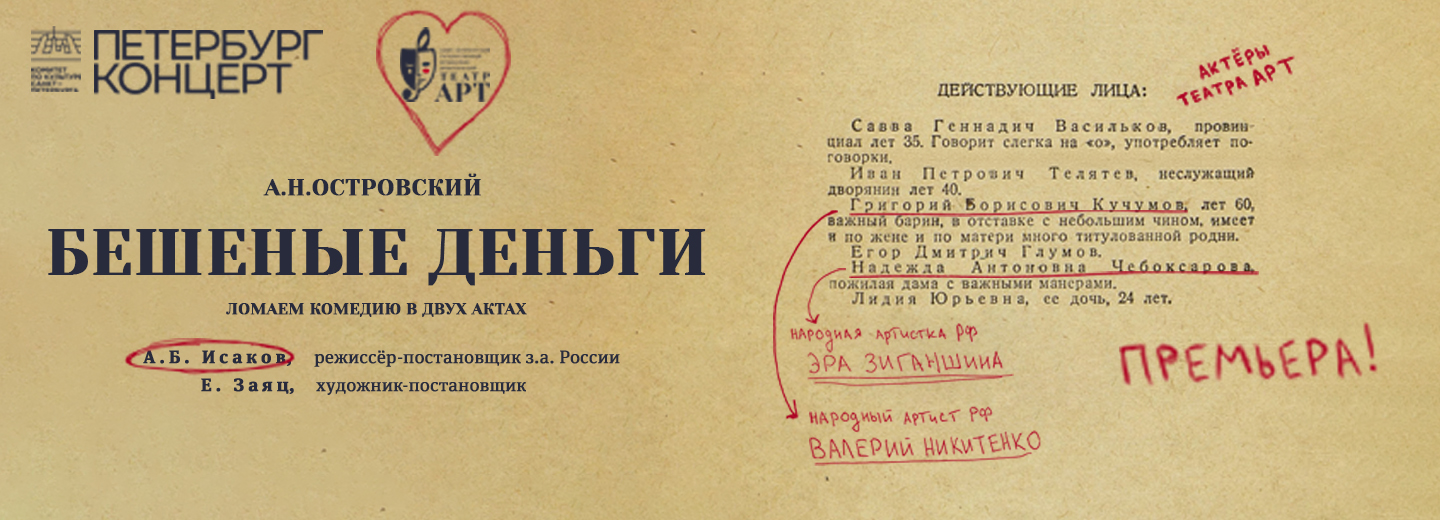 ПЕТЕРБУРГ
КОНЦЕРТ
КОМИТЕТ
ПО КУЛЬТУРЕ
САНКТ-
ПЕТЕРБУРГА
ТЕАТР
АРТ
А.Н.ОСТРОВСКИЙ
БЕШЕНЫЕ ДЕНЬГИ
ЛОМАЕМ КОМЕДИЮ В ДВУХ АКТАХ
А.Б. Исаков, режиссёр-постановщик з.а. России
Е. Заяц, художник-постановщик
ДЕЙСТВУЮЩИЕ ЛИЦА:
АКТЁРЫ
ТЕАТРА АРТ
Савва Геннадич Васильков, провин-
циал лет 35. Говорит слегка на «о», употребляет по-
говорки.
Иван Петрович Телятев, неслужащий
дворянин лет 40.
Григорий Борисович Кучумов, лет 60,
важный барин, в отставке с небольшим чином, имеет
и по жене и по матери много титулованной родни.
Егор Дмитрич Глумов.
Надежда Антоновна Чебоксарова,
пожилая дама с важными манерами.
Лидия Юрьевна, ее дочь, 24 лет.
НАРОДНАЯ АРТИСТКА РФ
ЭРА ЗИГАНШИНА
НАРОДНЫЙ АРТИСТ РФ
ВАЛЕРИЙ НИКИТЕНКО
ПРЕМЬЕРА!